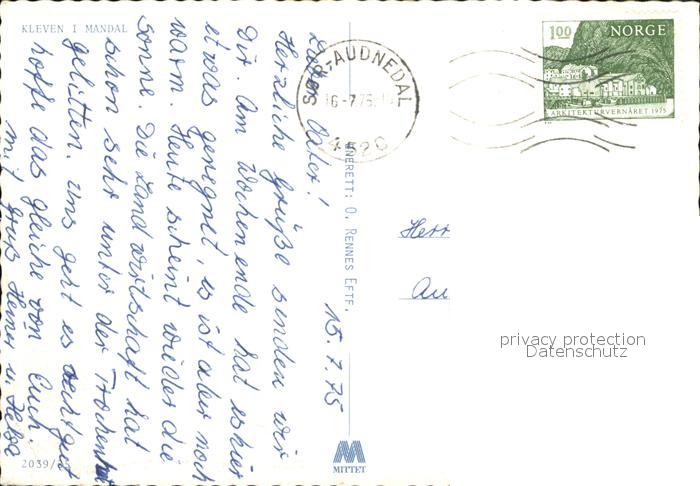 KLEVEN I MANDAL
15.7.75
Lieber Vater!
Herzliche Grüße senden wir
Dir. Am Wochenende hat es hier
etwas geregnet, es ist aber noch
warm. Heute scheint wieder die
Sonne. Die Landwirtschaft hat
schon sehr unter der Trockenheit
gelitten. Uns geht es recht gut
hoffe das gleiche von Euch.
mit Gruß
2039/
ENERETT: O. RENNES EFTF.
MITTET
SØR-AUDNEDAL
16-7.75
4520
1.00 NORGE
ARKITEKTURVERNÅRET 1975
Herr
Au
privacy protection
Datenschutz